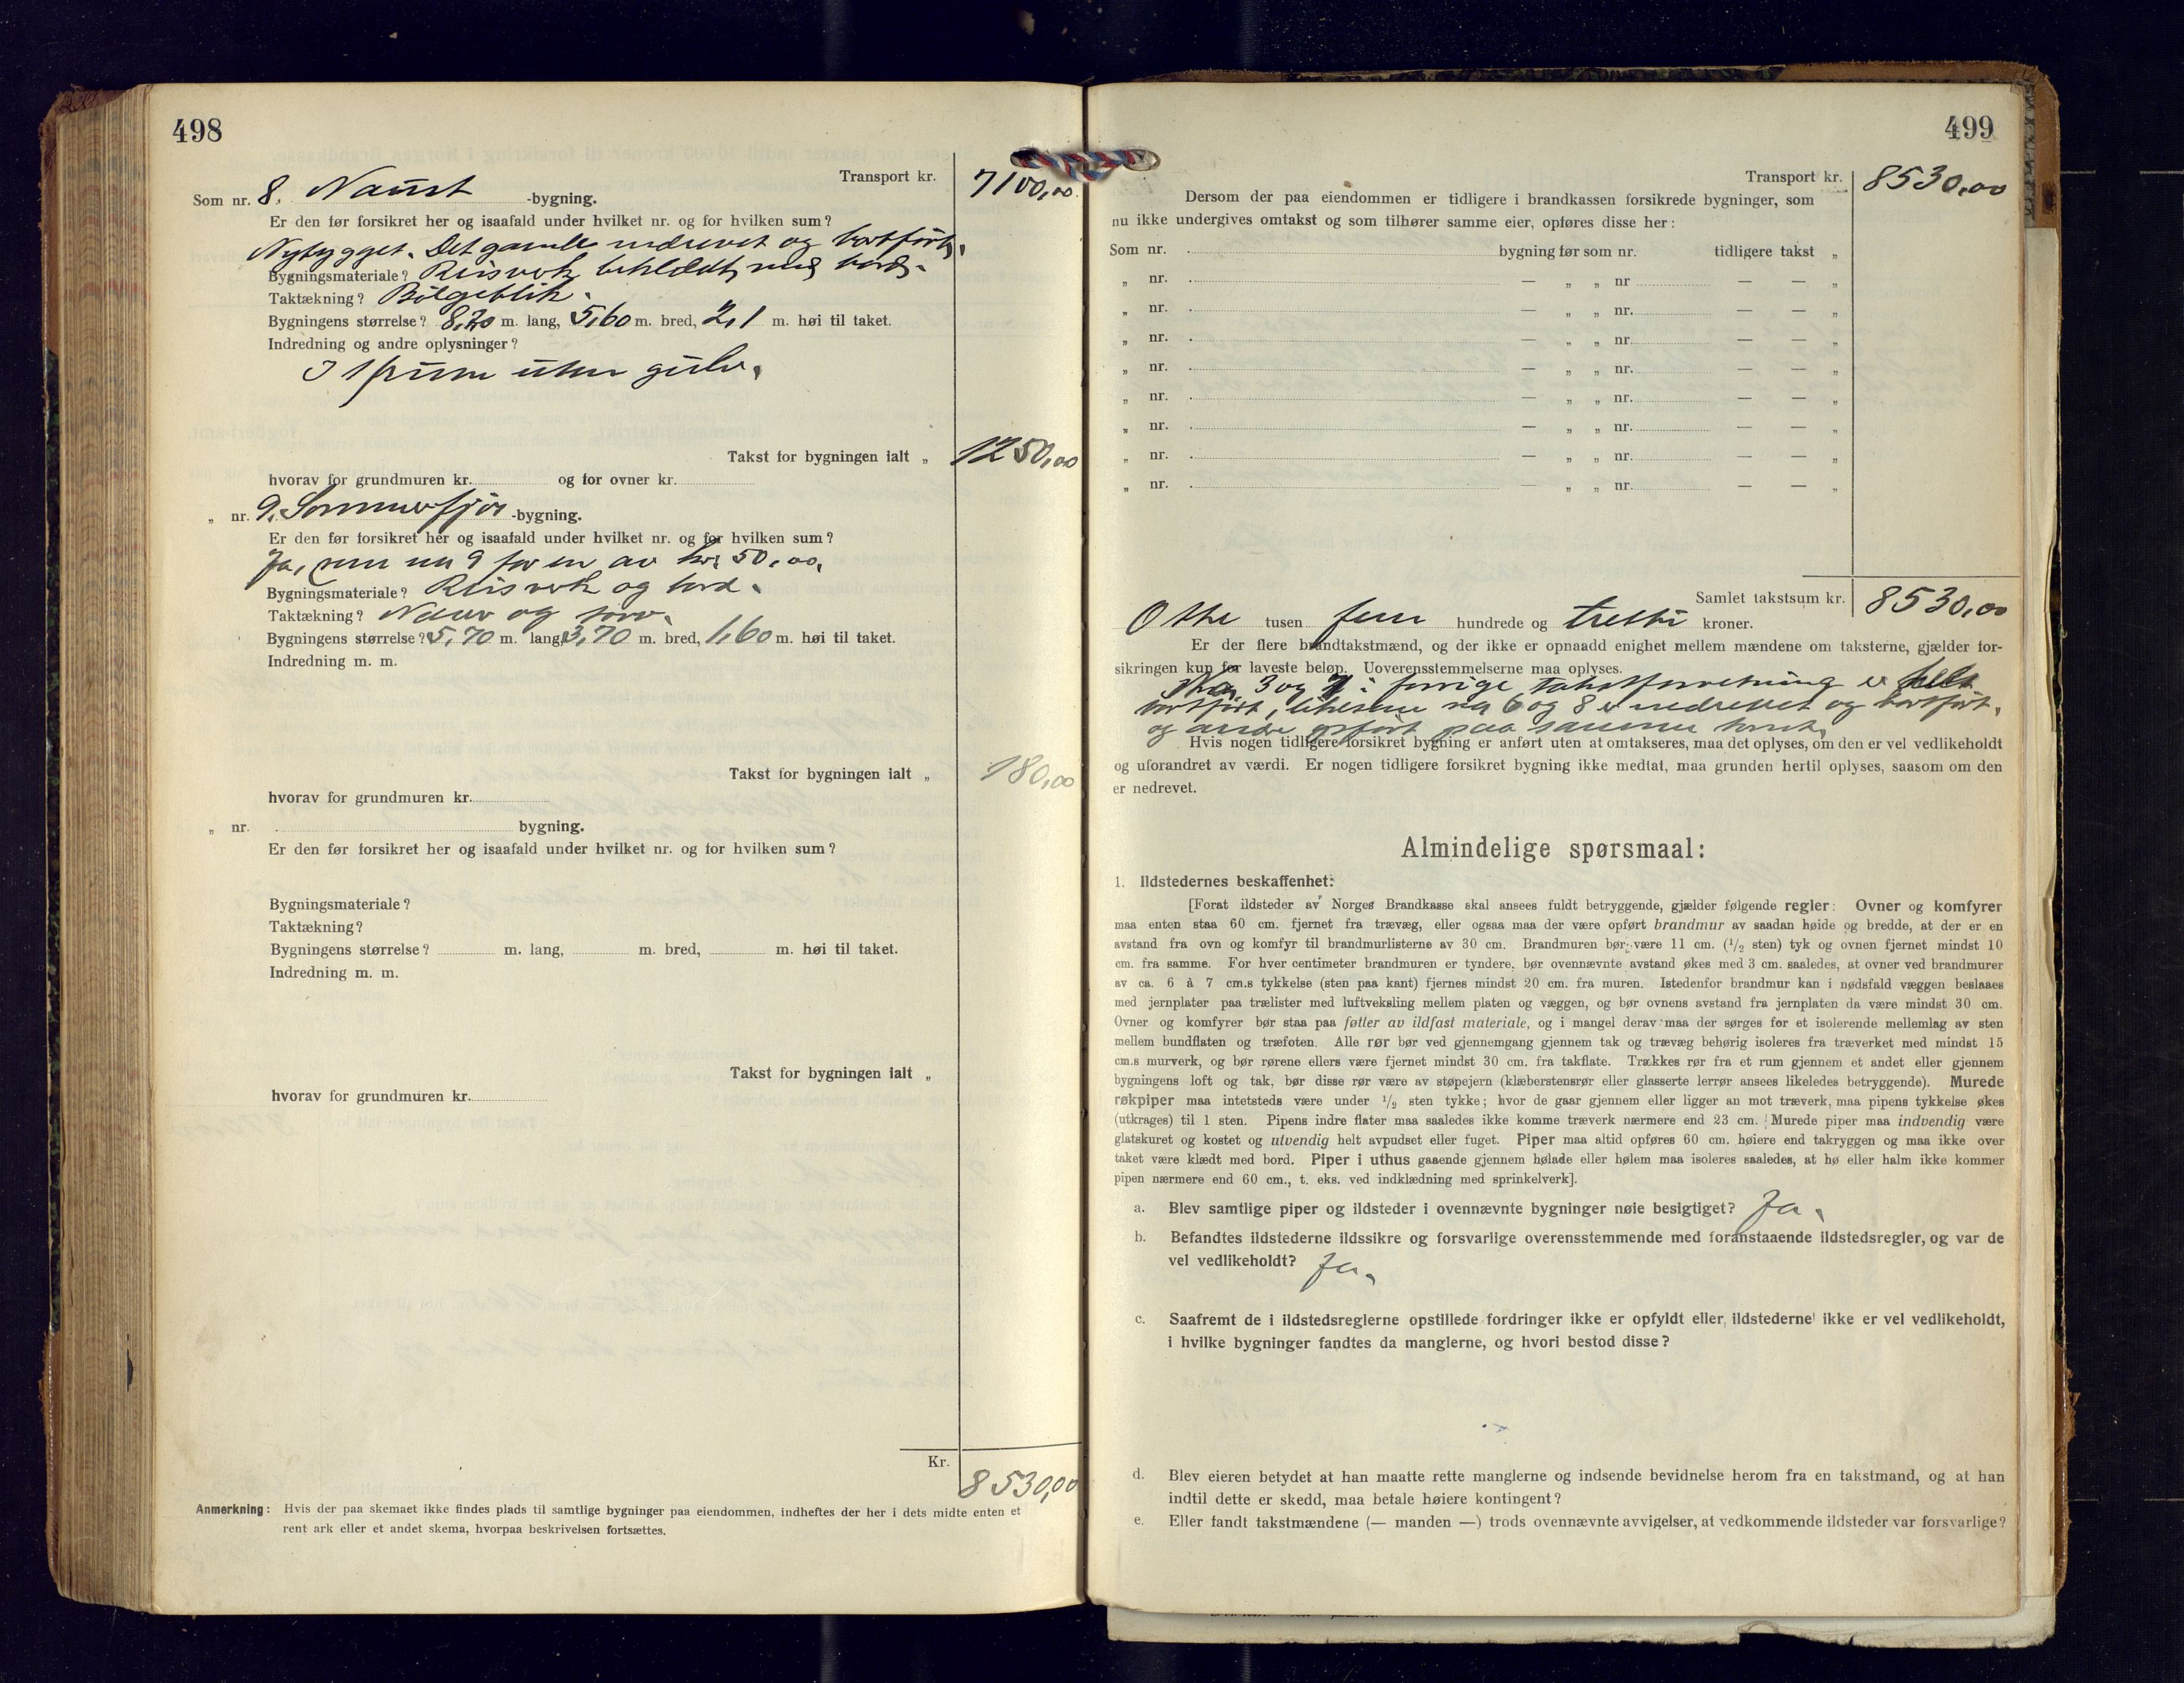 498
Transport kr. 7100,00
Som nr. 8. Naust -bygning.
Er den før forsikret her og isaafald under hvilket nr. og for hvilken sum?
Nybygget. Det gamle nedrevet og bortført.
Bygningsmateriale? Reisverk beklædt med bord.
Taktækning? Bølgeblik.
Bygningens størrelse? 8,20 m. lang, 5,60 m. bred, 2,1 m. høi til taket.
Indredning og andre oplysninger?
I 1 rum uten gulv.
Takst for bygningen ialt „ 1250,00
hvorav for grundmuren kr. og for ovner kr.
„ nr. 9. Sommerfjøs -bygning.
Er den før forsikret her og isaafald under hvilket nr. og for hvilken sum?
Ja, som nr 9 for en av kr. 50,00.
Bygningsmateriale? Reisverk og bord.
Taktækning? Næver og torv.
Bygningens størrelse? 5,70 m. lang, 3,70 m. bred, 1,60 m. høi til taket.
Indredning m. m.
Takst for bygningen ialt „ 180,00
hvorav for grundmuren kr.
„ nr. bygning.
Er den før forsikret her og isaafald under hvilket nr. og for hvilken sum?
Bygningsmateriale?
Taktækning?
Bygningens størrelse? m. lang, m. bred, m. høi til taket.
Indredning m. m.
Takst for bygningen ialt „
hvorav for grundmuren kr.
Kr. 8530,00
Anmerkning: Hvis der paa skemaet ikke findes plads til samtlige bygninger paa eiendommen, indheftes der her i dets midte enten et
rent ark eller et andet skema, hvorpaa beskrivelsen fortsættes.
499
Transport kr. 8530,00
Dersom der paa eiendommen er tidligere i brandkassen forsikrede bygninger, som
nu ikke undergives omtakst og som tilhører samme eier, opføres disse her:
Som nr. bygning før som nr. tidligere takst „
„ nr. — „ „ nr — — „
„ nr. — „ „ nr. — — „
„ nr. — „ „ nr. — — „
„ nr. — „ „ nr. — — „
„ nr. — „ „ nr. — — „
„ nr. — „ „ nr. — — „
„ nr. — „ „ nr. — — „
„ nr. — „ „ nr. — — „
Samlet takstsum kr. 8530,00
Otte tusen fem hundrede og tretti kroner.
Er der flere brandtakstmænd, og der ikke er opnaadd enighet mellem mændene om taksterne, gjælder for-
sikringen kun for laveste beløp. Uoverensstemmelserne maa oplyses.
3 og 7 i forrige takstforretning er helt
bortført, likesom nr 6 og 8 er nedrevet og bortført,
og andre opført paa samme tomt.
Hvis nogen tidligere forsikret bygning er anført uten at omtakseres, maa det oplyses, om den er vel vedlikeholdt
og uforandret av værdi. Er nogen tidligere forsikret bygning ikke medtat, maa grunden hertil oplyses, saasom om den
er nedrevet.
Almindelige spørsmaal:
1. Ildstedernes beskaffenhet:
[Forat ildsteder av Norges Brandkasse skal ansees fuldt betryggende, gjælder følgende regler: Ovner og komfyrer
maa enten staa 60 cm. fjernet fra trævæg, eller ogsaa maa der være opført brandmur av saadan høide og bredde, at der er en
avstand fra ovn og komfyr til brandmurlisterne av 30 cm. Brandmuren bør være 11 cm. (1/2 sten) tyk og ovnen fjernet mindst 10
cm. fra samme. For hver centimeter brandmuren er tyndere, bør ovennævnte avstand økes med 3 cm. saaledes, at ovner ved brandmurer
av ca. 6 à 7 cm.s tykkelse (sten paa kant) fjernes mindst 20 cm. fra muren. Istedenfor brandmur kan i nødsfald væggen beslaaes
med jernplater paa trælister med luftveksling mellem platen og væggen, og bør ovnens avstand fra jernplaten da være mindst 30 cm.
Ovner og komfyrer bør staa paa føtter av ildfast materiale, og i mangel derav maa der sørges for et isolerende mellemlag av sten
mellem bundflaten og træfoten. Alle rør bør ved gjennemgang gjennem tak og trævæg behørig isoleres fra træverket med mindst 15
cm.s murverk, og bør rørene ellers være fjernet mindst 30 cm. fra takflate. Trækkes rør fra et rum gjennem et andet eller gjennem
bygningens loft og tak, bør disse rør være av støpejern (klæberstensrør eller glasserte lerrør ansees likeledes betryggende). Murede
røkpiper maa intetsteds være under 1/2 sten tykke; hvor de gaar gjennem eller ligger an mot træverk, maa pipens tykkelse økes
(utkrages) til 1 sten. Pipens indre flater maa saaledes ikke komme træverk nærmere end 23 cm. Murede piper maa indvendig være
glatskuret og kostet og utvendig helt avpudset eller fuget. Piper maa altid opføres 60 cm. høiere end takryggen og maa ikke over
taket være klædt med bord. Piper i uthus gaaende gjennem hølade eller hølem maa isoleres saaledes, at hø eller halm ikke kommer
pipen nærmere end 60 cm., t. eks. ved indklædning med sprinkelverk].
a. Blev samtlige piper og ildsteder i ovennævnte bygninger nøie besigtiget? Ja.
b. Befandtes ildstederne ildssikre og forsvarlige overensstemmende med foranstaaende ildstedsregler, og var de
vel vedlikeholdt? Ja.
c. Saafremt de i ildstedsreglerne opstillede fordringer ikke er opfyldt eller ildstederne ikke er vel vedlikeholdt,
i hvilke bygninger fandtes da manglerne, og hvori bestod disse?
d. Blev eieren betydet at han maatte rette manglerne og indsende bevidnelse herom fra en takstmand, og at han
indtil dette er skedd, maa betale høiere kontingent?
e. Eller fandt takstmændene (— manden —) trods ovennævnte avvigelser, at vedkommende ildsteder var forsvarlige?